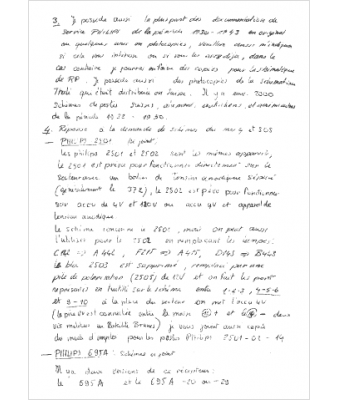 3. Je possède aussi la plus part des documentations de
service PHILIPS de la période 1930-1943 en original
ou quelques unes en photocopies, veuillez aussi m'indiquer
si cela vous intéresse ou si vous les avez déjà, dans le
cas contraire je pourrai en faire des copies pour les
de RP. Je possède aussi des photocopies de la schémathèque
Thali qui était distribuée en Suisse. Il y a env. 7000
schémas de postes suisses, allemands, autrichiens et
de la période 1928 - 1950.
4. Réponse à la demande de schémas du no 4 p 303
— PHILIPS 2501 ci joint.
Les philips 2501 et 2502 sont les mêmes appareils,
le 2501 est prévu pour fonctionner directement sur le
secteur avec un boîtier de tension anodique séparé
(généralement le 372), le 2502 est prévu pour fonctionner
sur accu de 4V et 120V ou accu 4V et appareil de
tension anodique.
Le schéma concerne le 2501, mais on peut aussi
l'utiliser pour le 2502 en remplaçant les lampes:
=> A442, F215 => A415, D143 => B443
Le bloc 2503 est supprimé, remplacé par une
pile de polarisation (2505) de 15V et on fait les ponts
représentés en traitillé sur le schéma entre 1-2-3, 4-5-6
et 8-10 à la place du secteur on met l'accu 4V
(le père est connectée entre la masse + et - deux
vis) je vous joins aussi copie
du mode d'emploi pour les postes Philips 2501-02-14
— PHILIPS 695A: Schémas ci joint
Il y a deux versions de ce récepteur:
le 695A et le 695A -20 ou -29